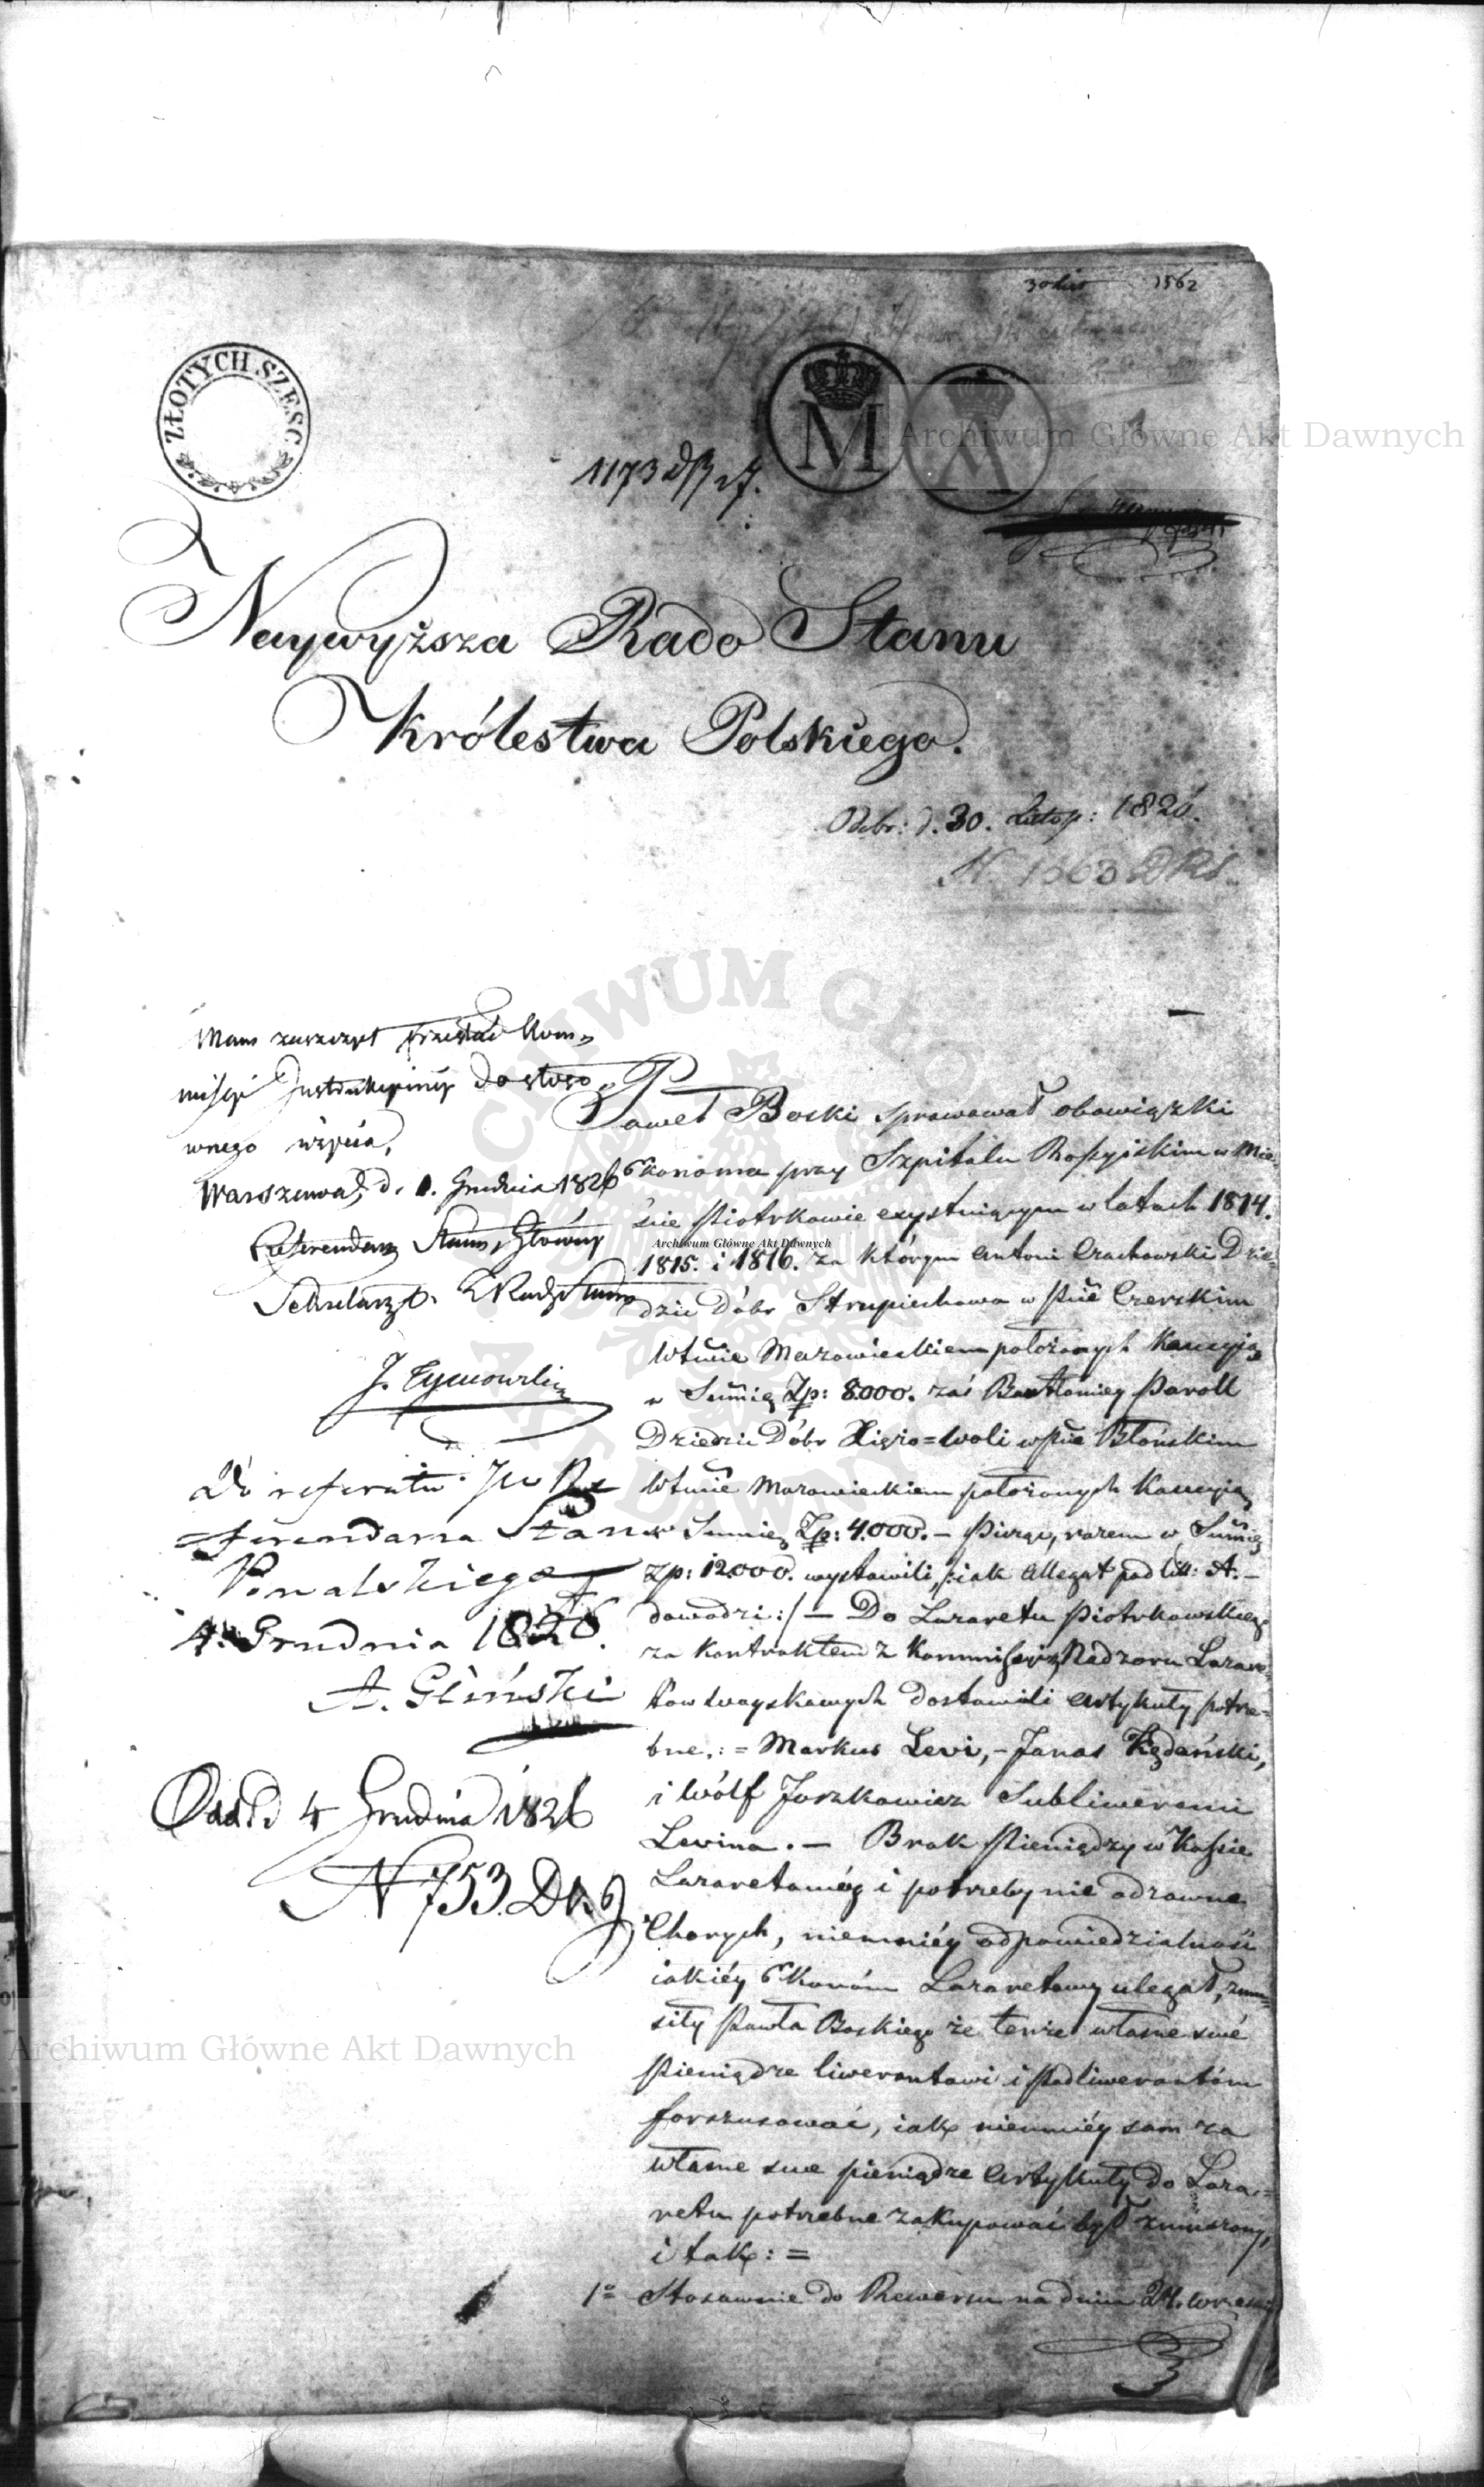 1562
ZŁOTYCH SZESC
M
Archiwum Główne Akt Dawnych
1173
Naywyższa Rado Stanu
Królestwa Polskiego.
Odebr: d. 30. Listop: 1826.
N. 1363 DRS.
Mam zaszczyt przesłać Kom„
missyi Instrukcyiney do stoso„
wnego użycia,
Warszawa, d. 1. Grudnia 1826
Referendarz Stanu, Główny
Sekretarz Rady Stanu
J. Tymowski
Do referatu JW Re
ferendarza Stanu
4. Grudnia 1826.
A. Gliński
Odd. d 4 Grudnia 1826
N 753.
Paweł Boski sprawował obowiązki
Ekonoma przy Szpitalu Rossyiskim w Mie=
ście Piotrkowie exystuiącym w latach 1814.
Archiwum Główne Akt Dawnych
1815. i 1816. za którym Antoni Czachowski Dzie=
dzic Dóbr Strupiechowa w Pcie Czerskim
Wtwie Mazowieckiem położonych Kaucyią
w Summie Zp: 8000. zaś Bartłomiey Paroll
Dziedzic Dóbr Xiężo=Woli w Pcie Błońskim
Wtwie Mazowieckiem położonych Kaucyią
w Summie Zp: 4.000. – Pisząc, razem w Summie
Zp: 12000. wystawili, /:iak Allegat pod lit: A. –
dowodzi:/ – Do Lazaretu Piotrkowskiego
za kontraktem z Kommissyią Nadzoru Lazare=
tów Woyskowych dostawili Artykuły potrze=
bne,: = Markus Levi, – Jonas Kędański,
i Wólf Joszkowicz Subliweranci
Levina. – Brak Pieniędzy w Kassie
Lazaretowéy i potrzeby nie odzowne
Chorych, niemniéy odpowiedzialność
iakiéy Ekonóm Lazaretowy ulegał, zmu=
siły Pawła Boskiego że tenże własne swé
Pieniądze liwerantowi i Podliwerantóm
forszusować, iako niemniéy sam za
własne swe pieniądze Artykuły do Laza=
retu potrzebne zakupować był zmuszony,
i tak: =
1º Stosownie do Rewersu na dniu 24. Wrześ
Archiwum Główne Akt Dawnych
ARCHIWUM GŁÓWNE AKT DAWNYCH